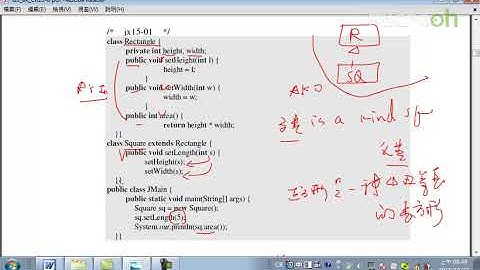 /* jx15-01 */
class Rectangle {
private int height, width;
public void setHeight(int l) {
height = l;
}
public void setWidth(int w) {
width = w;
}
public int area() {
return height * width;
}}
class Square extends Rectangle {
public void setLength(int s) {
setHeight(s);
setWidth(s);
}};
public class JMain {
public static void main(String[] args) {
Square sq = new Square();
sq.setLength(5);
System.out.println(sq.area());
}}
R
SQ
AKO
子類 is a kind of
父類
正方形是一種四邊等長
的長方形
R's In